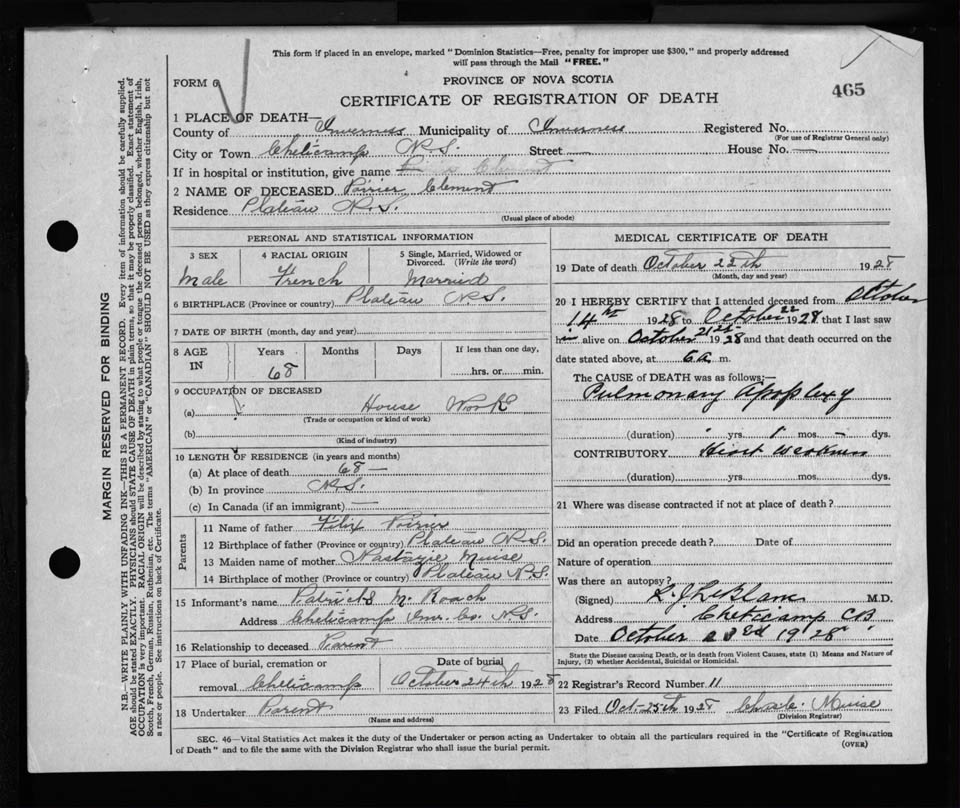 This form if placed in an envelope, marked "Dominion Statistics—Free, penalty for improper use $300," and properly addressed
will pass through the Mail "FREE."
FORM 6
PROVINCE OF NOVA SCOTIA
465
CERTIFICATE OF REGISTRATION OF DEATH
1 PLACE OF DEATH—
County of Inverness Municipality of Inverness Registered No.
(For use of Registrar General only)
City or Town Cheticamp N.S. Street — House No. —
If in hospital or institution, give name
2 NAME OF DECEASED Poirier Clement
Residence Plateau N.S.
(Usual place of abode)
PERSONAL AND STATISTICAL INFORMATION
3 SEX 4 RACIAL ORIGIN 5 Single, Married, Widowed or
Divorced. (Write the word)
Male French Married
6 BIRTHPLACE (Province or country) Plateau N.S.
7 DATE OF BIRTH (month, day and year)
8 AGE Years Months Days If less than one day,
IN 68 hrs. or min.
9 OCCUPATION OF DECEASED
(a) House Work
(Trade or occupation or kind of work)
(b)
(Kind of industry)
10 LENGTH OF RESIDENCE (in years and months)
(a) At place of death 68 —
(b) In province N.S.
(c) In Canada (if an immigrant) —
Parents
11 Name of father Felix Poirier
12 Birthplace of father (Province or country) Plateau N.S.
13 Maiden name of mother Nastazie Muise
14 Birthplace of mother (Province or country) Plateau N.S.
15 Informant's name Patrick M. Roach
Address Cheticamp Inv. Co. N.S.
16 Relationship to deceased Parent
17 Place of burial, cremation or Date of burial
removal Cheticamp October 24th 1928
18 Undertaker Parent
(Name and address)
MEDICAL CERTIFICATE OF DEATH
19 Date of death October 22th 1928
(Month, day and year)
20 I HEREBY CERTIFY that I attended deceased from October
14th 1928 to October 22 1928 that I last saw
him alive on October 21st 1928 and that death occurred on the
date stated above, at 6 a m.
The CAUSE of DEATH was as follows:—
Pulmonary Apoplexy
(duration) yrs. mos. — dys.
CONTRIBUTORY Heart Weakness
(duration) yrs. mos. dys.
21 Where was disease contracted if not at place of death?
Did an operation precede death? Date of
Nature of operation
Was there an autopsy?
(Signed) L. J. LeBlanc M.D.
Address Cheticamp CB
Date October 23rd 1928
State the Disease causing Death, or in death from Violent Causes, state (1) Means and Nature of
Injury, (2) whether Accidental, Suicidal or Homicidal.
22 Registrar's Record Number 11
23 Filed Oct-25th 1928 Muise
(Division Registrar)
SEC. 46—Vital Statistics Act makes it the duty of the Undertaker or person acting as Undertaker to obtain all the particulars required in the "Certificate of Registration
of Death" and to file the same with the Division Registrar who shall issue the burial permit.
(OVER)
MARGIN RESERVED FOR BINDING
N.B.—WRITE PLAINLY WITH UNFADING INK—THIS IS A PERMANENT RECORD. Every item of information should be carefully supplied.
AGE should be stated EXACTLY. PHYSICIANS should STATE CAUSE OF DEATH in plain terms, so that it may be properly classified. Exact statement of
OCCUPATION is very important. RACIAL ORIGIN will be described by stating to what people or tongue the deceased person belonged, whether English, Irish,
Scotch, French, German, Russian, Ruthenian, etc. The terms "AMERICAN" or "CANADIAN" SHOULD NOT BE USED as they express citizenship but not
a race or people. See instructions on back of Certificate.